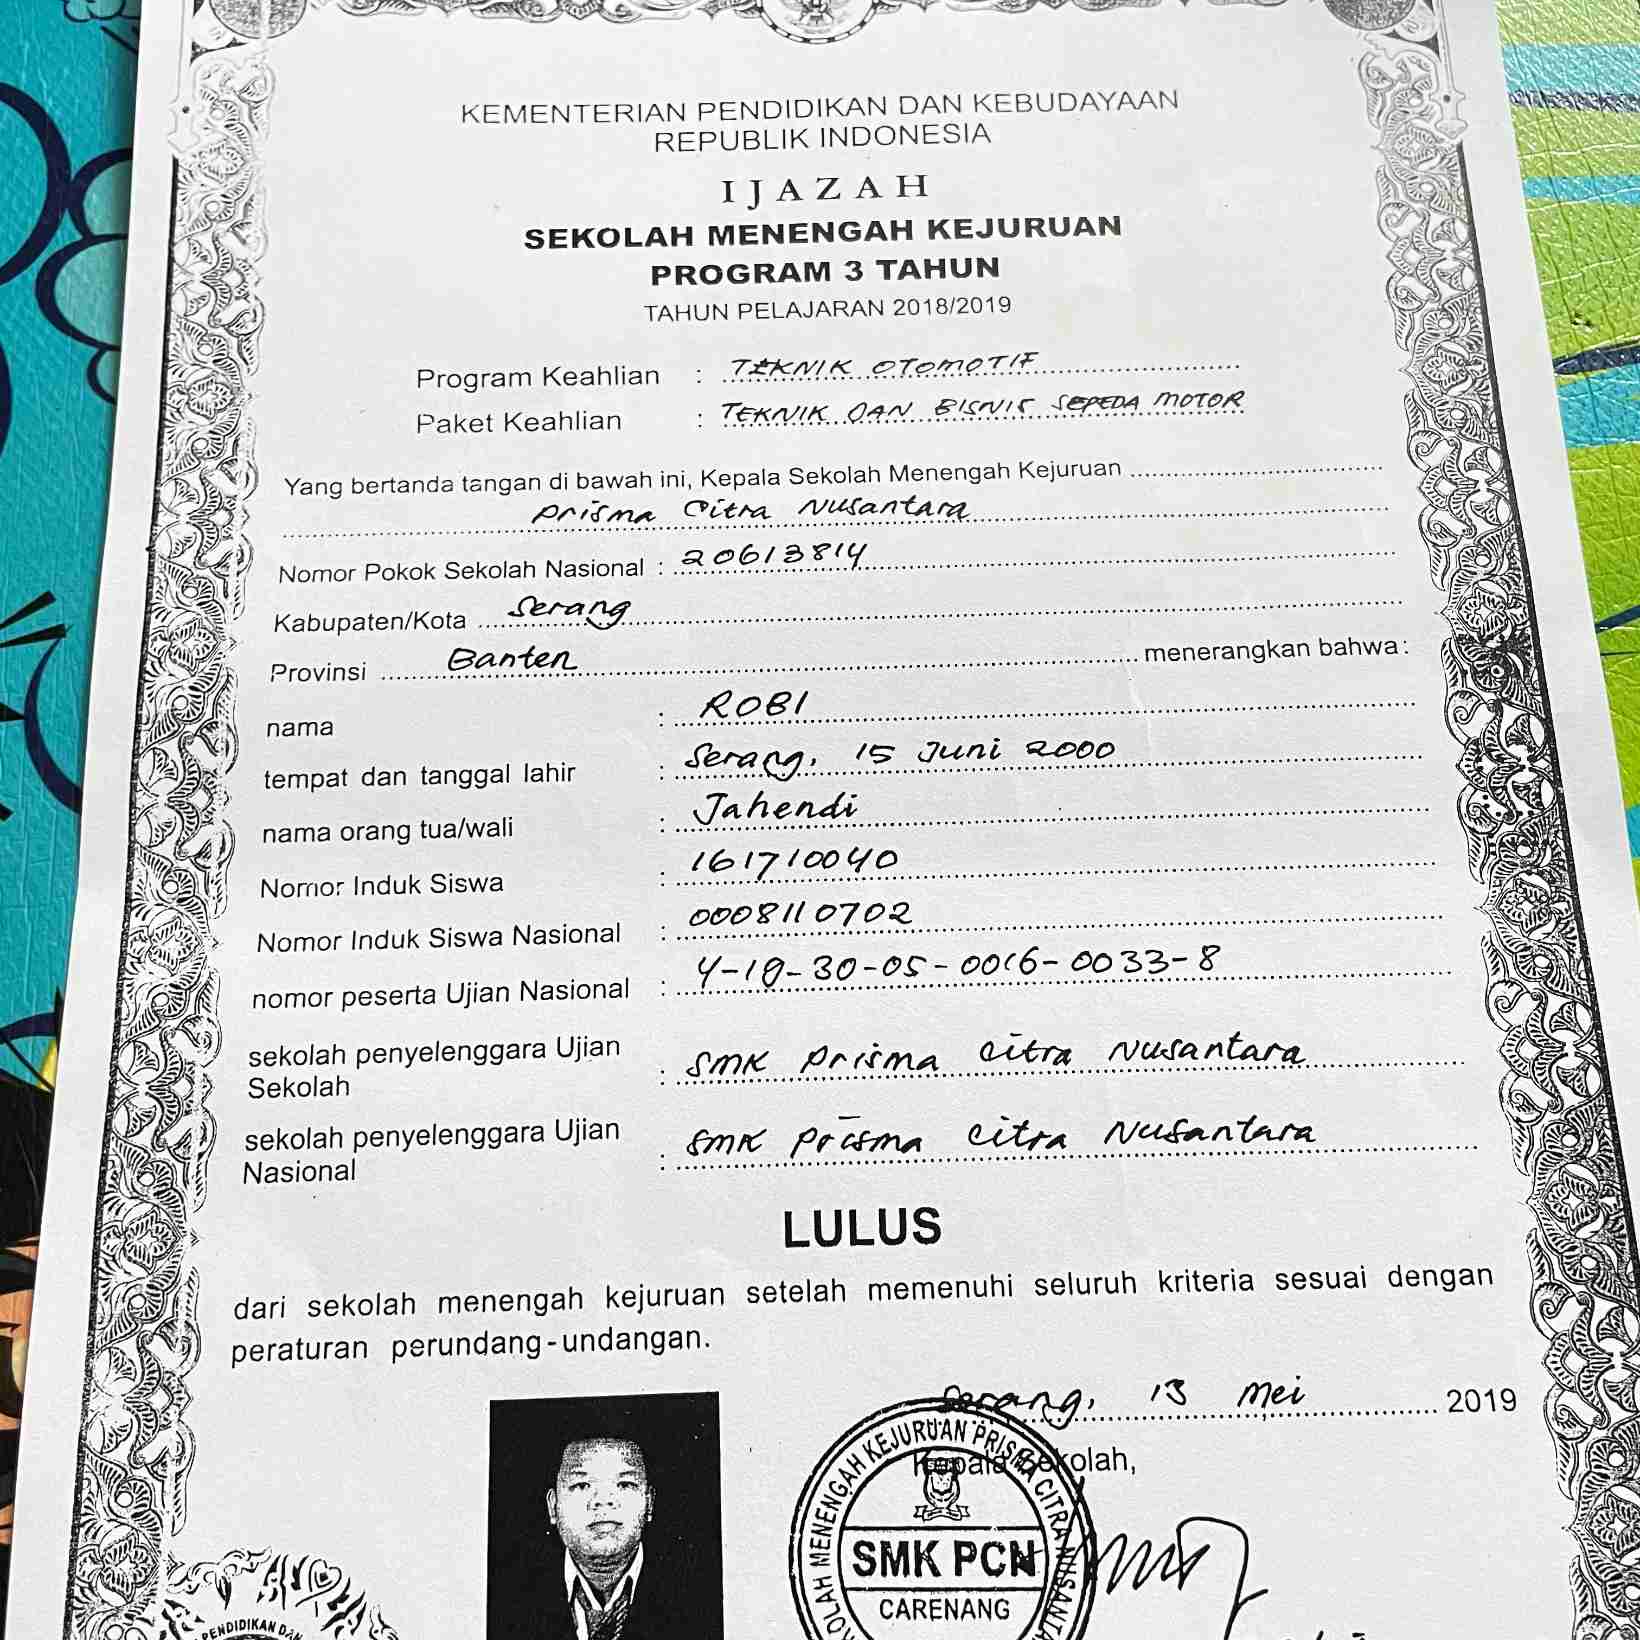 KEMENTERIAN PENDIDIKAN DAN KEBUDAYAAN
REPUBLIK INDONESIA
IJAZAH
SEKOLAH MENENGAH KEJURUAN
PROGRAM 3 TAHUN
TAHUN PELAJARAN 2018/2019
Program Keahlian : TEKNIK OTOMOTIF
Paket Keahlian : TEKNIK DAN BISNIS SEPEDA MOTOR
Yang bertanda tangan di bawah ini, Kepala Sekolah Menengah Kejuruan
Prisma Citra Nusantara
Nomor Pokok Sekolah Nasional : 20613814
Kabupaten/Kota Serang
Provinsi Banten menerangkan bahwa:
nama : ROBI
tempat dan tanggal lahir : Serang, 15 Juni 2000
nama orang tua/wali : Jahendi
Nomor Induk Siswa : 161710040
Nomor Induk Siswa Nasional : 0008110702
nomor peserta Ujian Nasional : 4-19-30-05-0016-0033-8
sekolah penyelenggara Ujian
Sekolah : SMK Prisma Citra Nusantara
sekolah penyelenggara Ujian
Nasional : SMK Prisma Citra Nusantara
LULUS
dari sekolah menengah kejuruan setelah memenuhi seluruh kriteria sesuai dengan
peraturan perundang-undangan.
Serang, 13 Mei 2019
Kepala Sekolah,
SEKOLAH MENENGAH KEJURUAN PRISMA CITRA NUSANTARA
SMK PCN
CARENANG
PENDIDIKAN DAN